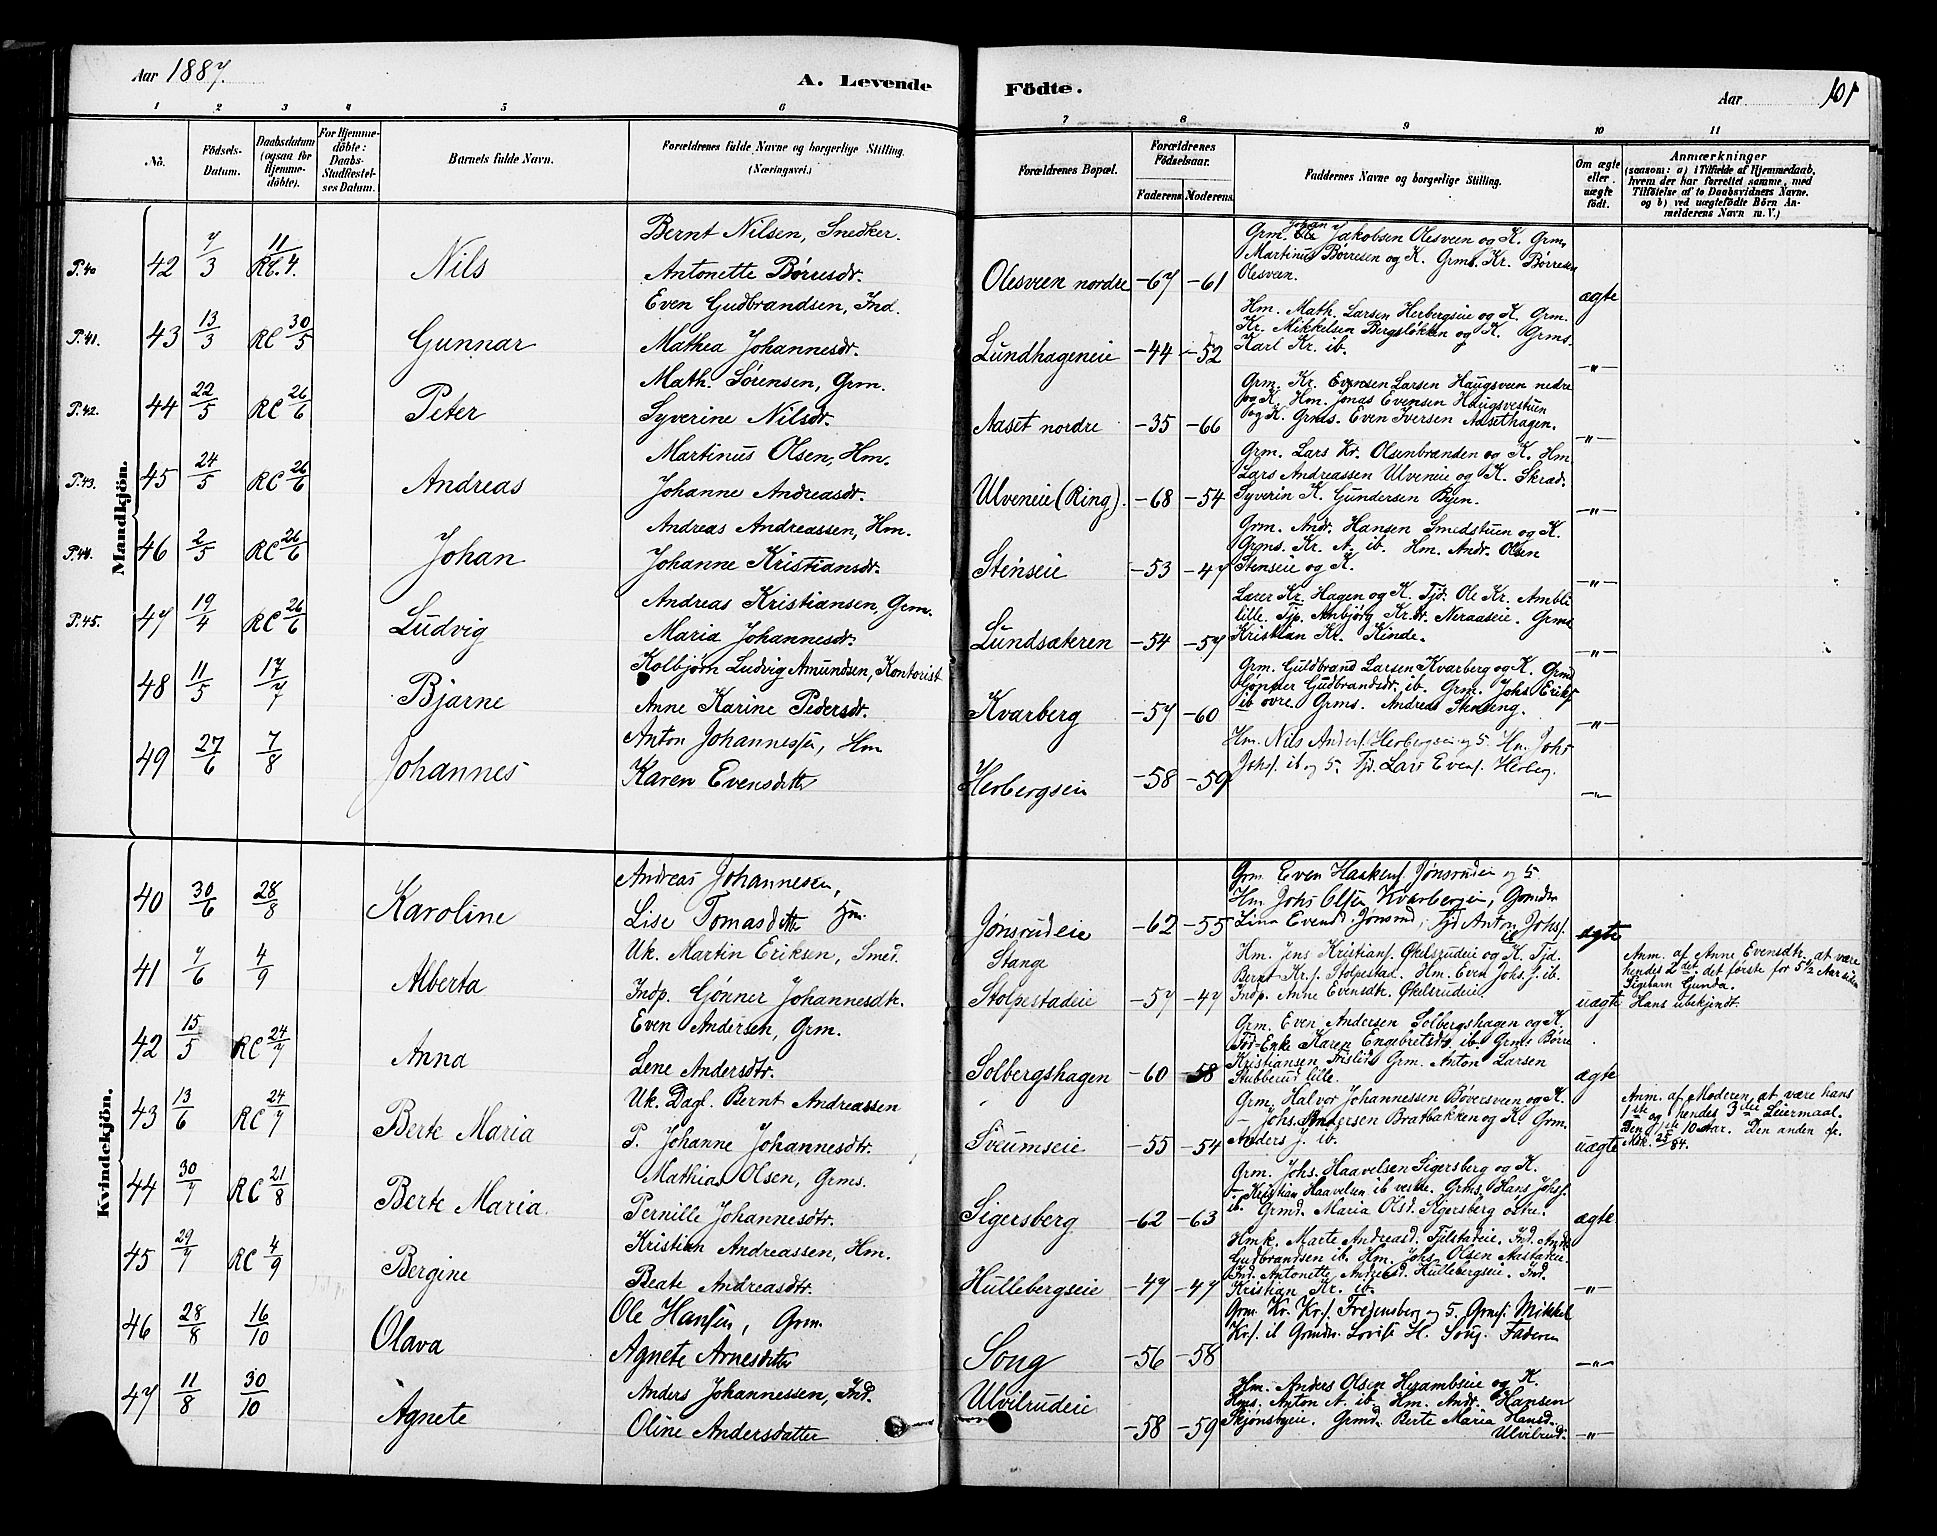 Aar 1887.
A. Levende Födte.
Aar 101
1 2 3 4 5 6 7 8 9 10 11
No.
Födsels-Datum.
Daabsdatum (ogsaa for Hjemmedöbte).
For Hjemmedöbte: Daabs-Stadfæstelses Datum.
Barnets fulde Navn.
Forældrenes fulde Navne og borgerlige Stilling. (Næringsvei.)
Forældrenes Bopæl.
Forældrenes Födselsaar.
Faderens Moderens
Faddernes Navne og borgerlige Stilling.
Om ægte eller uægte födt.
Anmærkninger
(saasom: a) i Tilfælde af Hjemmedaab, hvem der har forrettet samme, med Tilföielse af to Daabsvidners Navne, og b) ved uægtefödte Börn Anmelderens Navn m. V.)
Mandkjön.
P.40 42 7/3 11/4 Rc. Nils
Bernt Nilsen, Snedker.
Antonette Børresdr.
Olesveen nordre -67 -61
Grm. Johan Jakobsen Olesveen og K. Grm.
Martinus Børresen og K. Grms. Kr. Børresen
Olesveen.
ægte
P.41. 43 13/3 RC 30/5 Gunnar
Even Gudbrandsen, Ind.
Mathea Johannesdr.
Lundhageneie -44 -52
Hm. Math. Larsen Herbergseie og K. Grm.
Kr. Mikkelsen Bergsløkken og K. Grms.
Karl Kr. ib.
-"-
P.42. 44 22/5 RC 26/6 Peter
Math. Sørensen, Grm.
Syverine Nilsdr.
Aaset nordre -35 -66
Grm. Kr. Evensen Larsen Haugsveen nedre
og K. Hm. Jonas Evensen Haugsvestuen
og K. Grms. Even Iversen Aasethagen.
-"-
P.43. 45 24/5 RC 26/6 Andreas
Martinus Olsen, Hm.
Johanne Andreasdr.
Ulveneie (Ring). -68 -54
Grm. Lars Kr. Olsenbrænden og K. Hm.
Lars Andreassen Ulveneie og K. Skræd.
Syverin K. Gundersen Byen.
-"-
P.44. 46 2/5 RC 26/6 Johan
Andreas Andreassen, Hm.
Johanne Kristiansdr.
Stenseie -53 -47
Grm. Andr. Hansen Smedstuen og K.
Grms. Kr. A. ib. Hm. Andr. Olsen
Stenseie og K.
-"-
P.45. 47 19/4 RC 26/6 Ludvig
Andreas Kristiansen, Grm.
Maria Johannesdr.
Lundsækeren -54 -57
Lærer Kr. Hagen og K. Tjd. Ole Kr. Ambli
lille. Tjp. Anbjörg Kr.dr. Neraaseie. Grms
Kristian Kr. Kinde.
-"-
48 11/5 17/7 Bjarne
Kolbjørn Ludvig Amundsen, Kontorist
Anne Karine Pedersdr.
Kvarberg -57 -60
Grm. Guldbrand Larsen Kvarberg og K. Grmd
Gønner Gudbrandsdr. ib. Grm. Johs Eriks.
ib øvre. Grms. Andreas
-"-
49 27/6 7/8 Johannes
Anton Johannessen, Hm
Karen Evensdatter
Herbergseie -58 -59
Hm. Nils Anders. Herbergseie og K. Hm. Johs
Johs. ib og K. Tjd. Lars Evens. Herberg.
-"-
Kvindekjön.
40 30/6 28/8 Karoline
Andreas Johannesen,
Lise Tomasdatter Hm.
Jønsrudeie -62 -55
Grm Even Haakens. Jønsrudeie og K.
Hm Johs Olsen Kvarbergeie, Grmdr
Lina Evensd. Jønsrud, Tjd Anton Johs.
ib
ægte
41 7/6 4/9 Alberta
Uk. Martin Eriksen, Smed.
Indp. Gønner Johannesdtr.
Stange
Stolpestadeie -57 -47
Hm. Jens Kristians. Økelsrudeie og K. Tjd.
Bernt Kr.s. Stolpestad. Hm. Even Johs.s. ib.
Indp. Anne Evensdtr. Økelsrudeie.
uægte
Anm. af Anne Evensdtr. at være
hendes 2det, det første for 5 1/2 Aar siden
Pigebarn Gunda.
Hans ubekjendt.
42 15/5 RC 24/7 Anna
Even Andersen, Grm.
Lene Andersdtr.
Solbergshagen -60 -58
Grm. Even Andersen Solbergshagen og K.
Fød-Enke Karen Engebretsdr. ib. Grms Børre
Kristiansen Frislid. Grm. Anton Larsen
Stubberud lille.
ægte
43 13/6 RC 24/7 Berte Maria
Uk. Dagl. Bernt Andreassen
P. Johanne Johannesdtr.
Sveumseie -55 -54
Grm. Halvor Johannessen Bøversveen og K.
- Johs. Andersen Bratbakken og K. Grm.
Anders J. ib.
uægte
Anm. af Moderen, at være hans
1ste og hendes 3die Leiermaal.
Den 1ste 10 Aar. Den anden
44 30/7 RC 21/8 Berte Maria.
Mathias Olsen, Grms.
Pernille Johannesdtr.
Sigersberg -62 -63
Grm. Johs. Haavelsen Sigersberg og K.
- Kristian Haavelsen ib vestre. Grms. Hans Johs.
ib. Grmd. Maria Olsd. Sigersberg østre.
ægte
45 29/7 RC 4/9 Bergine
Kristian Andreassen, Hm.
Beate Andreasdtr.
Hullebergseie -47 -47
Hmk. Marte Andreasd. Tjelstadeie. Ind. Andr.
Gudbrandsen ib. Hm. Johs Olsen Aastadeie.
Ind. Antonette Andreasd. Hullebergseie. Ind.
Kristian Kr. ib.
-"-
46 28/8 16/10 Olava
Ole Hansen, Grm.
Agnete Arnesdatter
Song -56 -58
Grm. Kr. Kr.s. Fredensberg og K. Grms. Mikkel
Kr.s. ib Grmdr. Lovise H. Song. Faderen
-"-
47 11/8 30/10 Agnete
Anders Johannessen, Ind.
Oline Andersdatter
Ulvilrudeie -58 -59
Hm. Anders Olsen Hesambseie og K.
Hms. Anton A. ib. Hm. Andr. Hansen
Skjønsbyeie. Grmd. Berte Maria Hansd.
Ulvilrud.
-"-